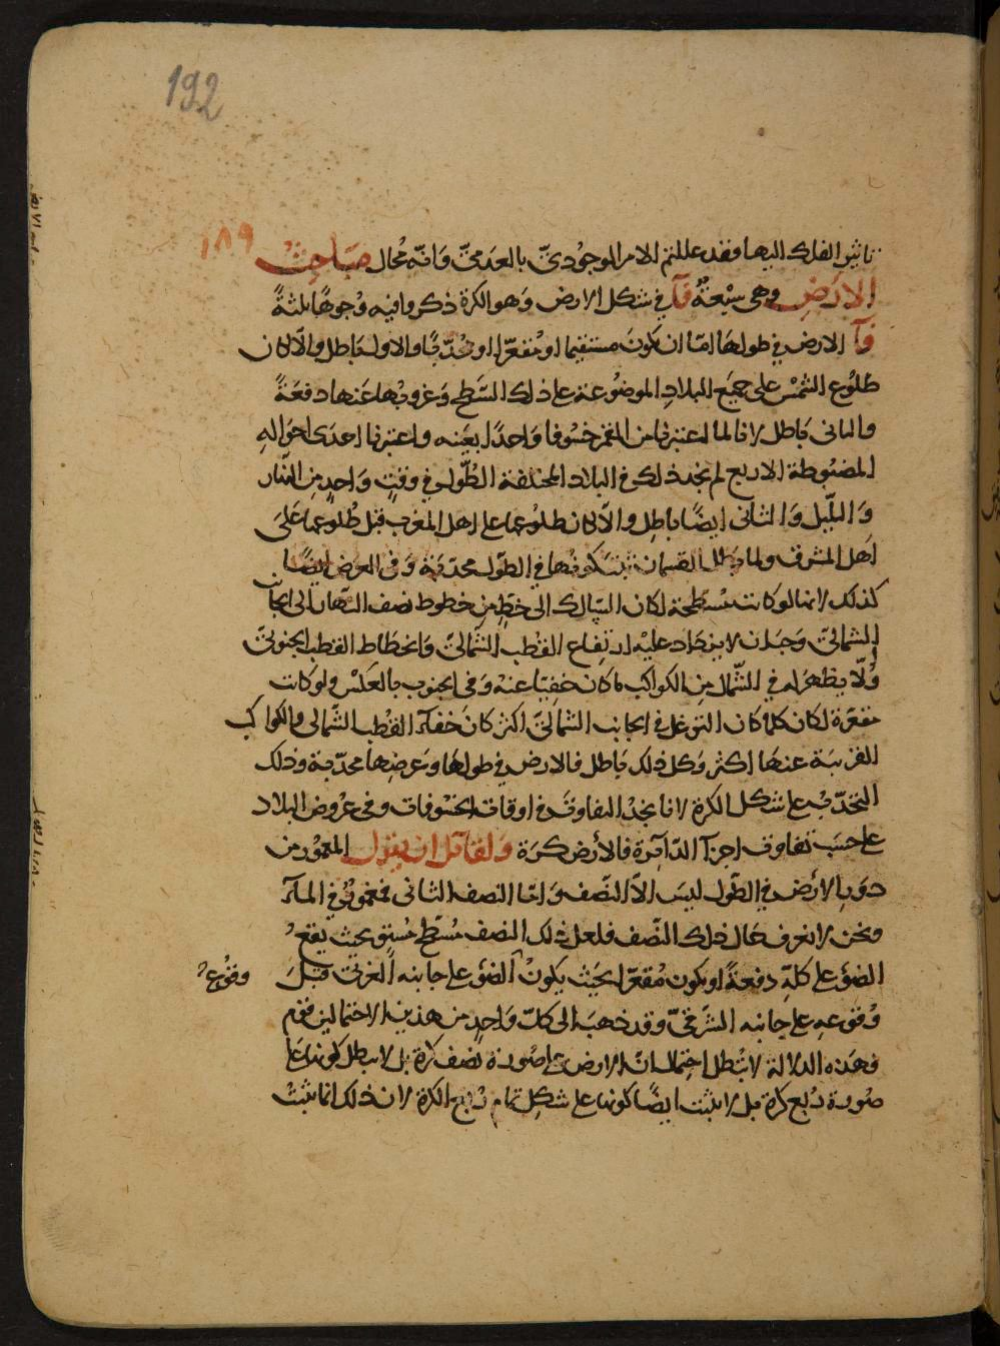 192
١٨٩
تاثير الفلك اليها فقد عللتم الامر الموجودىّ بالعدمىّ وَانّه مُحال مبَاحِثْ
الارَضِ وهى سبْعَةٌ فَآ فى شكل الارض وَهو الكرة ذكروا فيه وُجوهًا ثلثةً
فَآ الارض فى طولهَا امّا ان يكونَ مستقيما او مُقعّرا او محُدّبًا والاول بَاطل والّا لكان
طلُوع الشمْس على جميع البلادِ الموضُوعة على ذلك السَّطح وَغروبُها عَنها دفعَةً
والثانى بَاطل لانا لما اعتبرنا من القمر خسُوفا وَاحدًا بعَينه واعتبرنا احدَى احوَاله
المضبُوطة الاربع لم نجد ذلك فى البلاد المختلفة الطُّول فى وقتٍ وَاحدٍ مِن النّهار
وَالليْل وَالثانى ايضًا باطِل والّا لكان طلوعها على اهل المغرب قبْل طُلوعها عَلىَ
اهَل المشرق ولما بَطل القسمان ثبتَ كونُها فى الطّول محدّبَة وَفى العرض ايضًا
كذلك لانها لو كانت مسَطحة لكان السّالك الى خطٍ مِن خطوط نصف النّهار الى الجانب
الشمالىّ وَجبَ ان لا يزدَاد عليْه ارتفاع القُطب الشّمالىّ وَانحطَاط القطب الجنوبىّ
وُلا يظهرَ له فى الشّمال مِن الكواكب مَا كان خفيّا عنهُ وَفى الجنوب بالعكسْ ولو كانت
مقعّرة لكان كلّما كان التوغل فى الجانب الشمالىّ اكثر كانَ خفآءُ القُطب الشّمالى والكواكب
القريبَة عنهَا اكثر وَكل ذلك بَاطل فالارض فى طولهَا وعَرضِها محدّبة وذلك
التحَدّبُ على شكل الكرة لانا نجدُ التفاوُتَ فى اوقات الخسُوفات وفى عرُوض البلاد
على حسَب تفاوت اجزآ الدّآئرة فالأرض كرَة وَلقآئل ان يقول المعمُور من
دَوْر الارَض فى الطّول ليسَ الاّ النّصف وَامّا النصف الثانى فمغمورٌ فى المآء
ونحن لا نعرف حَال ذلك النّصف فلعل ذلك النصف مسُطّح مُستوٍ بحيث يقعُ
الضوءُ على كلّه دفعةً او يكون مُقعّرا بحَيث يكونُ الضوءُ على جانبه الغربىّ قبْلَ
وقوُعُ
وُقوعهِ على جانبه الشرقىّ وقد ذهبَ الى كلّ وَاحدٍ من هذين الاحتمالين قوم
فهَذه الدلالة لا تبُطل احتمال انّ الارض على صُورة نصف كُرة بل لا تبطل كونها عَلى
صُورة رُبع كُرة بل لا يثبت ايضًا كونها على شكِل تمام رُبع الكرة لان ذلك انّما يثبتُ